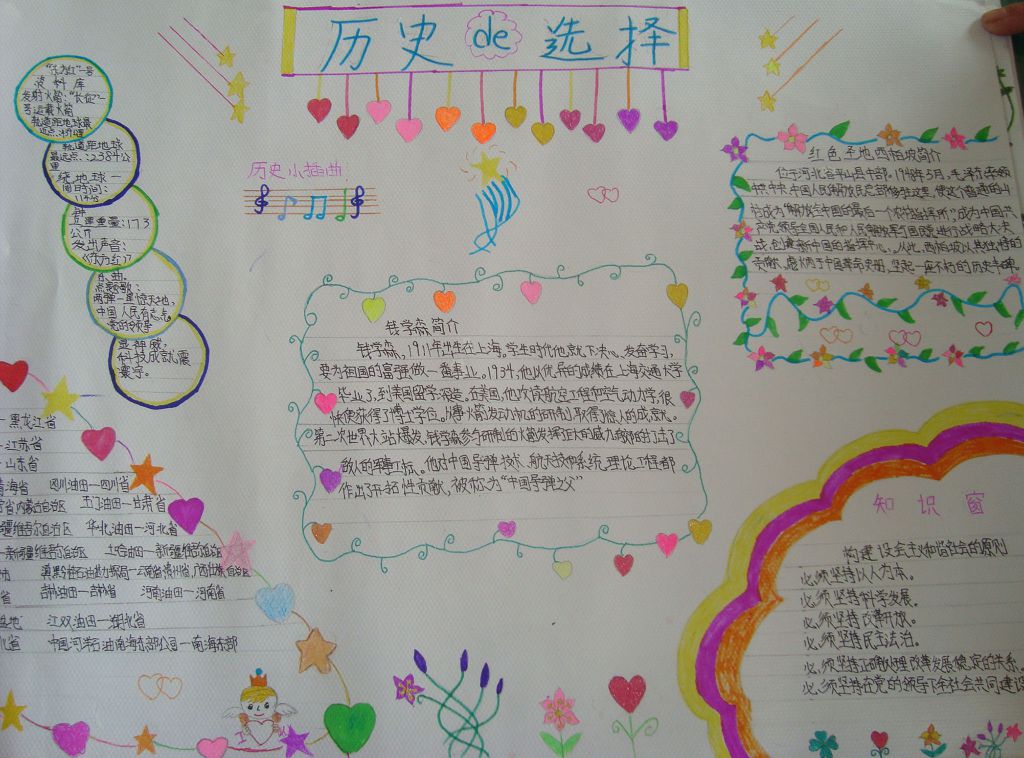 历史de选择
历史小插曲
"东方红"一号
资料库
发射火箭:"长征"一
号运载火箭
轨道距地球最
近点:439公里
轨道距地球
最远点:2384公
里
绕地球一
周时间:
114分
钟
卫星重量:173
公斤
发出声音:
《东方红》
乐曲。
点题歌:
两弹一星惊天地,
中国人民有志气。
党的领导
显神威,
科技成就震
寰宇。
钱学森简介
钱学森,1911年出生在上海,学生时代他就下决心,发奋学习,
要为祖国的富强做一番事业。1934,他以优异的成绩在上海交通大学
毕业了,到美国留学深造。在美国,他攻读航空工程和空气动力学,很
快便获得了博士学位。
第二次世界大站爆发,钱学森参与研制的火箭发挥巨大的威力
敌人的军事工坛。他对中国导弹技术、航天技
作出了开拓性贡献,被称为"中国导弹之父"
红色圣地西柏坡简介
位于河北省平山县中部。1948年5月,毛泽东率领
中共中央、中国人民解放军总部移驻这里,使这个普通的山
村成为"解放全中国的最后一个农村指挥所",成为中国共
产党领导全国人民和人民解放军与国民党进行战略大决
战,创建新中国的指挥中心。从此,西柏坡以其独特的
贡献,彪炳于中国革命史册,竖起一座不朽的历史丰碑。
一黑龙江省
一江苏省
一山东省
青海省 四川油田一四川省
内蒙古自治区 玉门油田一甘肃省
疆维吾尔自治区 华北油田一河北省
一新疆维吾尔自治区 吐哈油田一新疆维吾尔自治区
滇黔桂石油勘力探局一云南省贵州省,广西壮族自治区
省 吉林油田一吉林省 河南油田一河南省
江汉油田一湖北省
北省 中国海洋石油南海东部公司一南海东部
知识窗
构建设会主义和谐社会的原则
必须坚持以人为本。
必须坚持科学发展。
必须坚持改革开放。
必须坚持民主法治。
必须坚持正确处理改革发展稳定的关系
必须坚持在党的领导下全社会共同建设